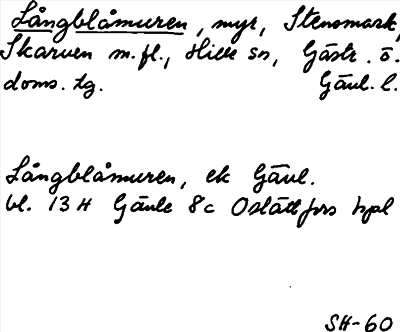 Långblåmuren, myr, Stensmark,
Skarven m.fl., Hille sn, Gästr. ö.
doms. tg. Gävl. l.
Långblåmuren, ek Gävl.
bl. 13 H Gävle 8c Oslättfors hpl
SH-60